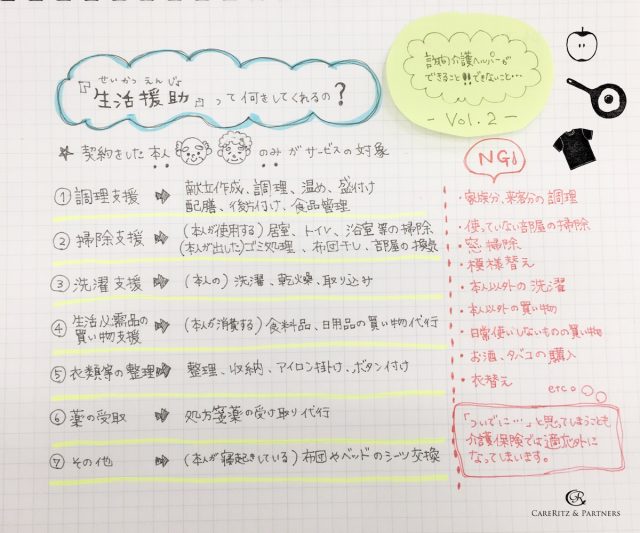 せいかつ えんじょ
『生活援助』って何をしてくれるの？
訪問介護ヘルパーが
できること!!できないこと…
- Vol.2 -
☆ 契約をした本人のみがサービスの対象
① 調理支援 ➡ 献立作成、調理、温め、盛付け
配膳、後片付け、食品管理
② 掃除支援 ➡ (本人が使用する)居室、トイレ、浴室等の掃除
(本人が出した)ゴミ処理、布団干し、部屋の換気
③ 洗濯支援 ➡ (本人の)洗濯、乾燥、取り込み
④ 生活必需品の
買い物支援 ➡ (本人が消費する)食料品、日用品の買い物代行
⑤ 衣類等の整理 ➡ 整理、収納、アイロン掛け、ボタン付け
⑥ 薬の受取 ➡ 処方箋薬の受け取り代行
⑦ その他 ➡ (本人が寝起きしている)布団やベッドのシーツ交換
NG!
・家族分、来客分の調理
・使っていない部屋の掃除
・窓掃除
・模様替え
・本人以外の洗濯
・本人以外の買い物
・日常使いしないものの買い物
・お酒、タバコの購入
・衣替え
etc。
「ついでに…」と思ってしまうことも
介護保険では適応外に
なってしまいます。
CR
CARERITZ & PARTNERS